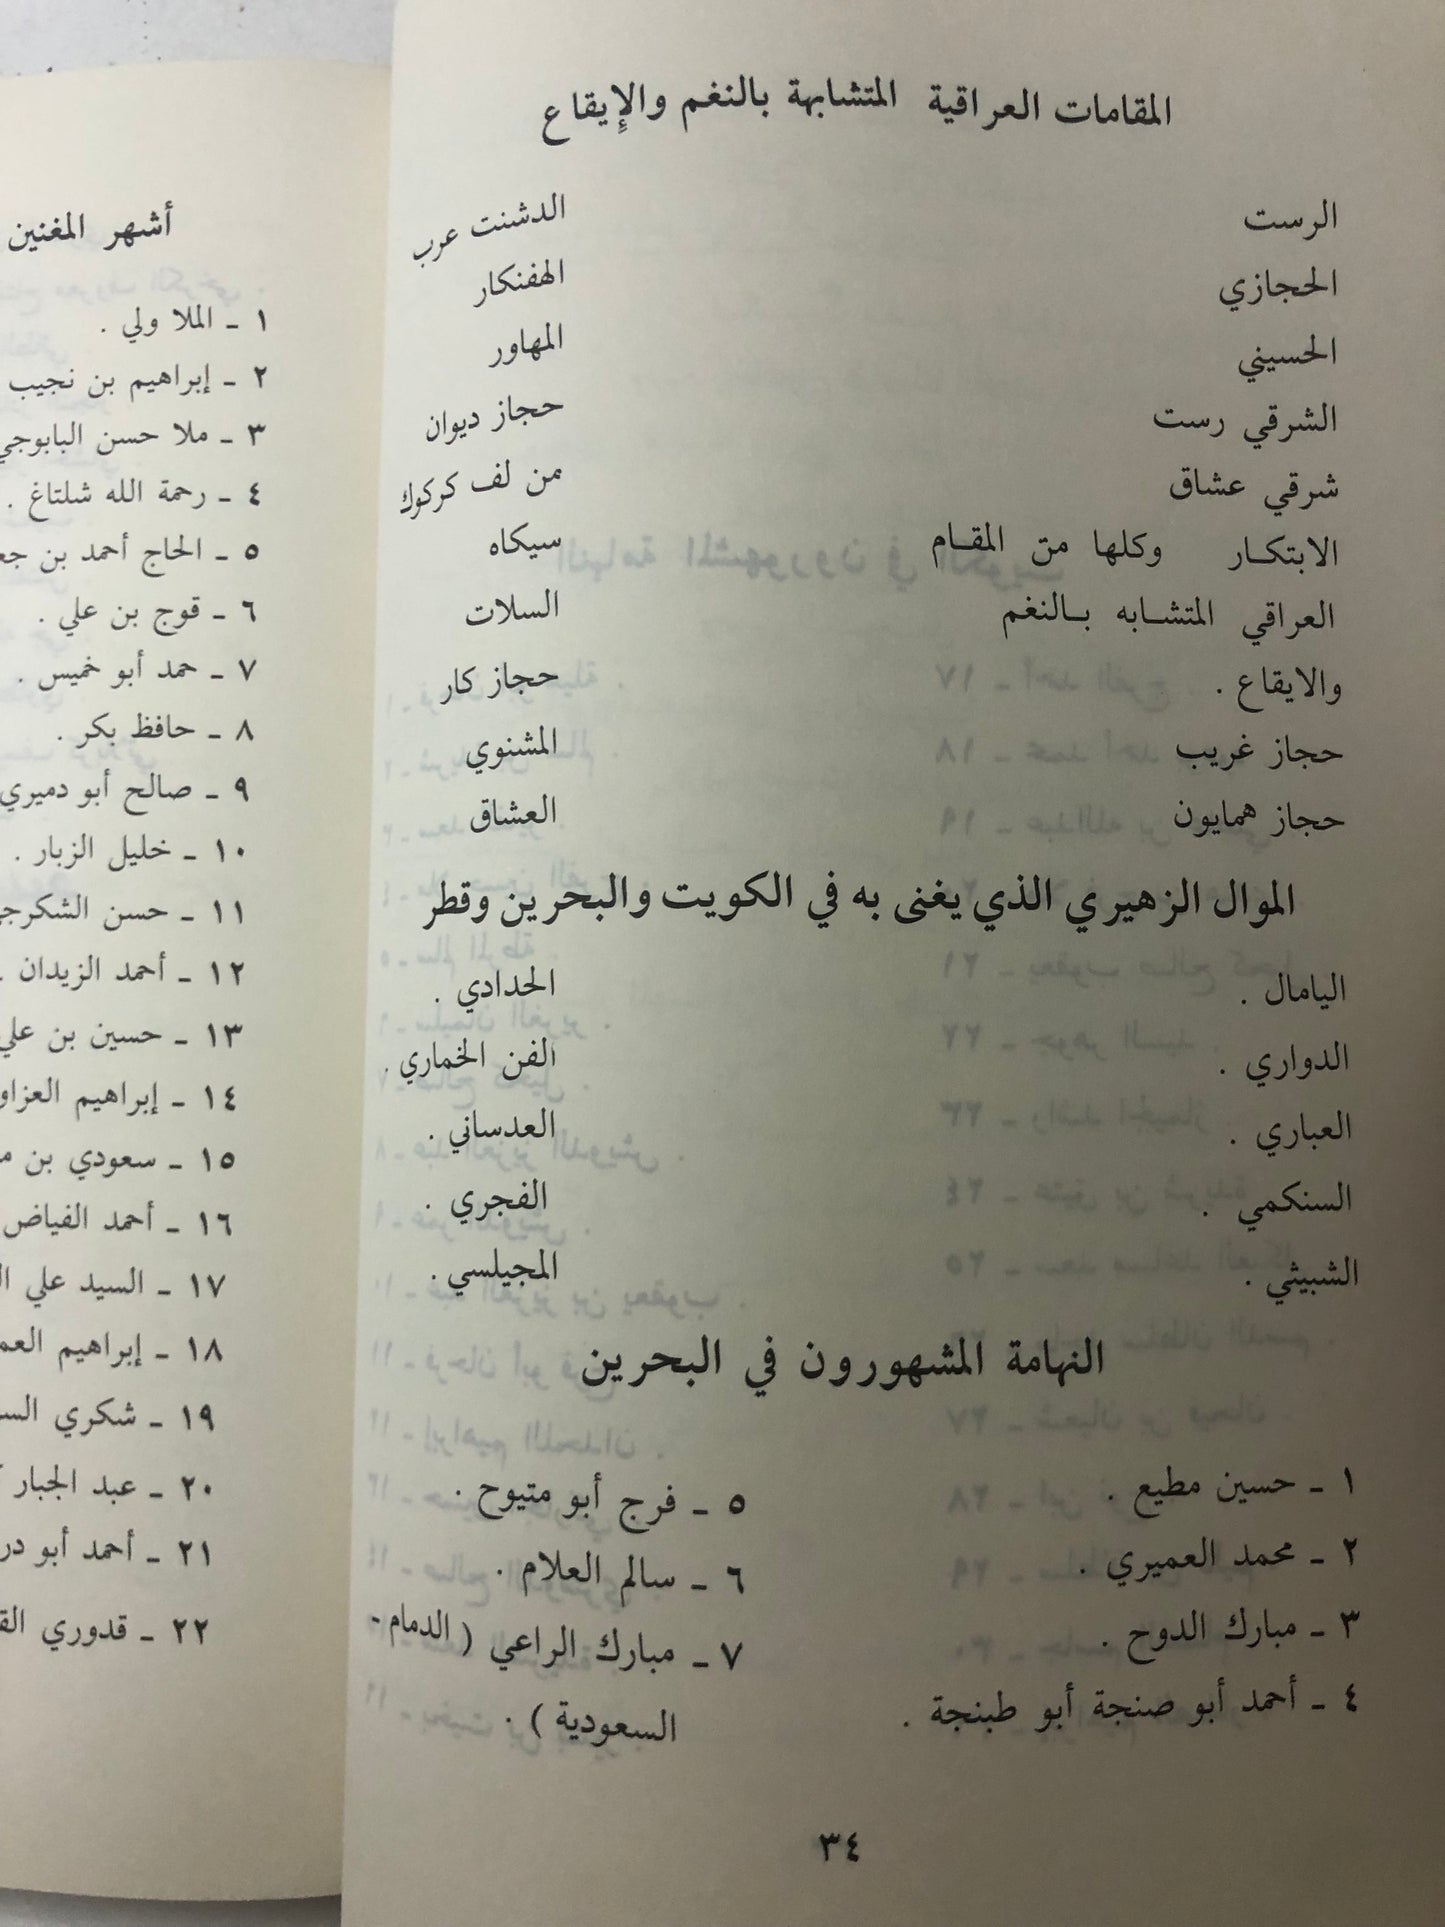 المقامات العراقية المتشابهة بالنغم والإيقاع
الرست
الحجازي
الحسيني
الشرقي رست
شرقي عشاق
الابتكـار وكلها من المقـام
العراقي المتشـابه بـالنغم
والايقاع .
حجاز غريب
حجاز همايون
الدشنت عرب
الهفنكار
المهاور
حجاز ديوان
من لف كركوك
سيكاه
السلات
حجاز كار
المشنوي
العشاق
الموال الزهيري الذي يغنى به في الكويت والبحرين وقطر
اليامال .
الدواري .
العباري .
السنكمي .
الشبيثي .
الحدادي .
الفن الخماري .
العدساني .
الفجري .
المجيلسي .
النهامة المشهورون في البحرين
١ ـ حسين مطيع .
٢ ـ محمد العميري .
٣ ـ مبارك الدوح .
٤ ـ أحمد أبو صنجة أبو طبنجة .
٥ ـ فرج أبو متيوح .
٦ ـ سالم العلام .
٧ ـ مبارك الراعي ( الدمام -
السعودية ) .
٣٤
أشهر المغنين
١ ـ الملا ولي .
٢ ـ إبراهيم بن نجيب
٣ ـ ملا حسن البابوجي
٤ ـ رحمة الله شلتاغ .
٥ ـ الحاج أحمد بن
٦ ـ قوج بن علي .
٧ ـ حمد أبو خميس .
٨ ـ حافظ بكر .
٩ ـ صالح أبو دميري
١٠ ـ خليل الزبار .
١١ ـ حسن
١٢ ـ أحمد الزيدان .
١٣ ـ حسين بن علي
١٤ ـ إبراهيم
١٥ ـ سعودي بن
١٦ ـ أحمد الفياض
١٧ ـ السيد علي
١٨ ـ إبراهيم
١٩ ـ شكري
٢٠ ـ عبد الجبار
٢١ ـ أحمد أبو
٢٢ ـ قدوري